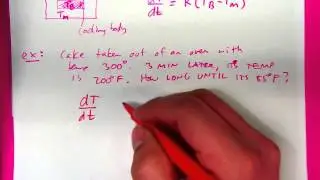 TB
Tm
cooling body
dT/dt = K(TB - Tm)
ex: Cake taken out of an oven with
temp 300°. 3 min later, its temp
is 200°F. How long until its 85°F?
dT
dt